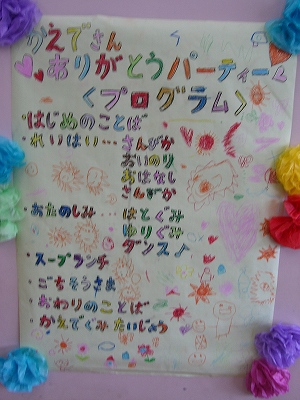 かえでさん
ありがとうパーティー
＜プログラム＞
・はじめのことば
・れいはい…さんびか
おいのり
おはなし
さんびか
・おたのしみ…はとぐみ
ゆりぐみ
ダンス♪
・スープランチ
・ごちそうさま
・おわりのことば
・かえでぐみたいじょう